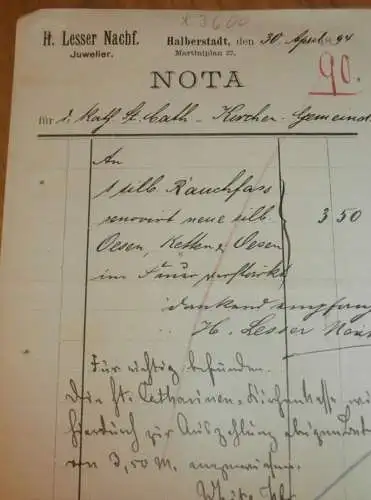 x 3600
H. Lesser Nachf.
Juwelier.
Halberstadt, den 30. April 94
Martiniplan 27.
90.
NOTA
für d. Kath. St. Cath - Kirchen-Gemeinde
An
1 silb. Rauchfass
renovirt neue silb. 3 50
Oesen, Ketten & Oesen
im Feuer verstärkt
dankend empfang
H. Lesser Nachf
Für richtig befunden.
Die St. Catharinen-Kirchenkasse wi
hierdurch zur Auszahlung
von 3,50 M. angewiesen.